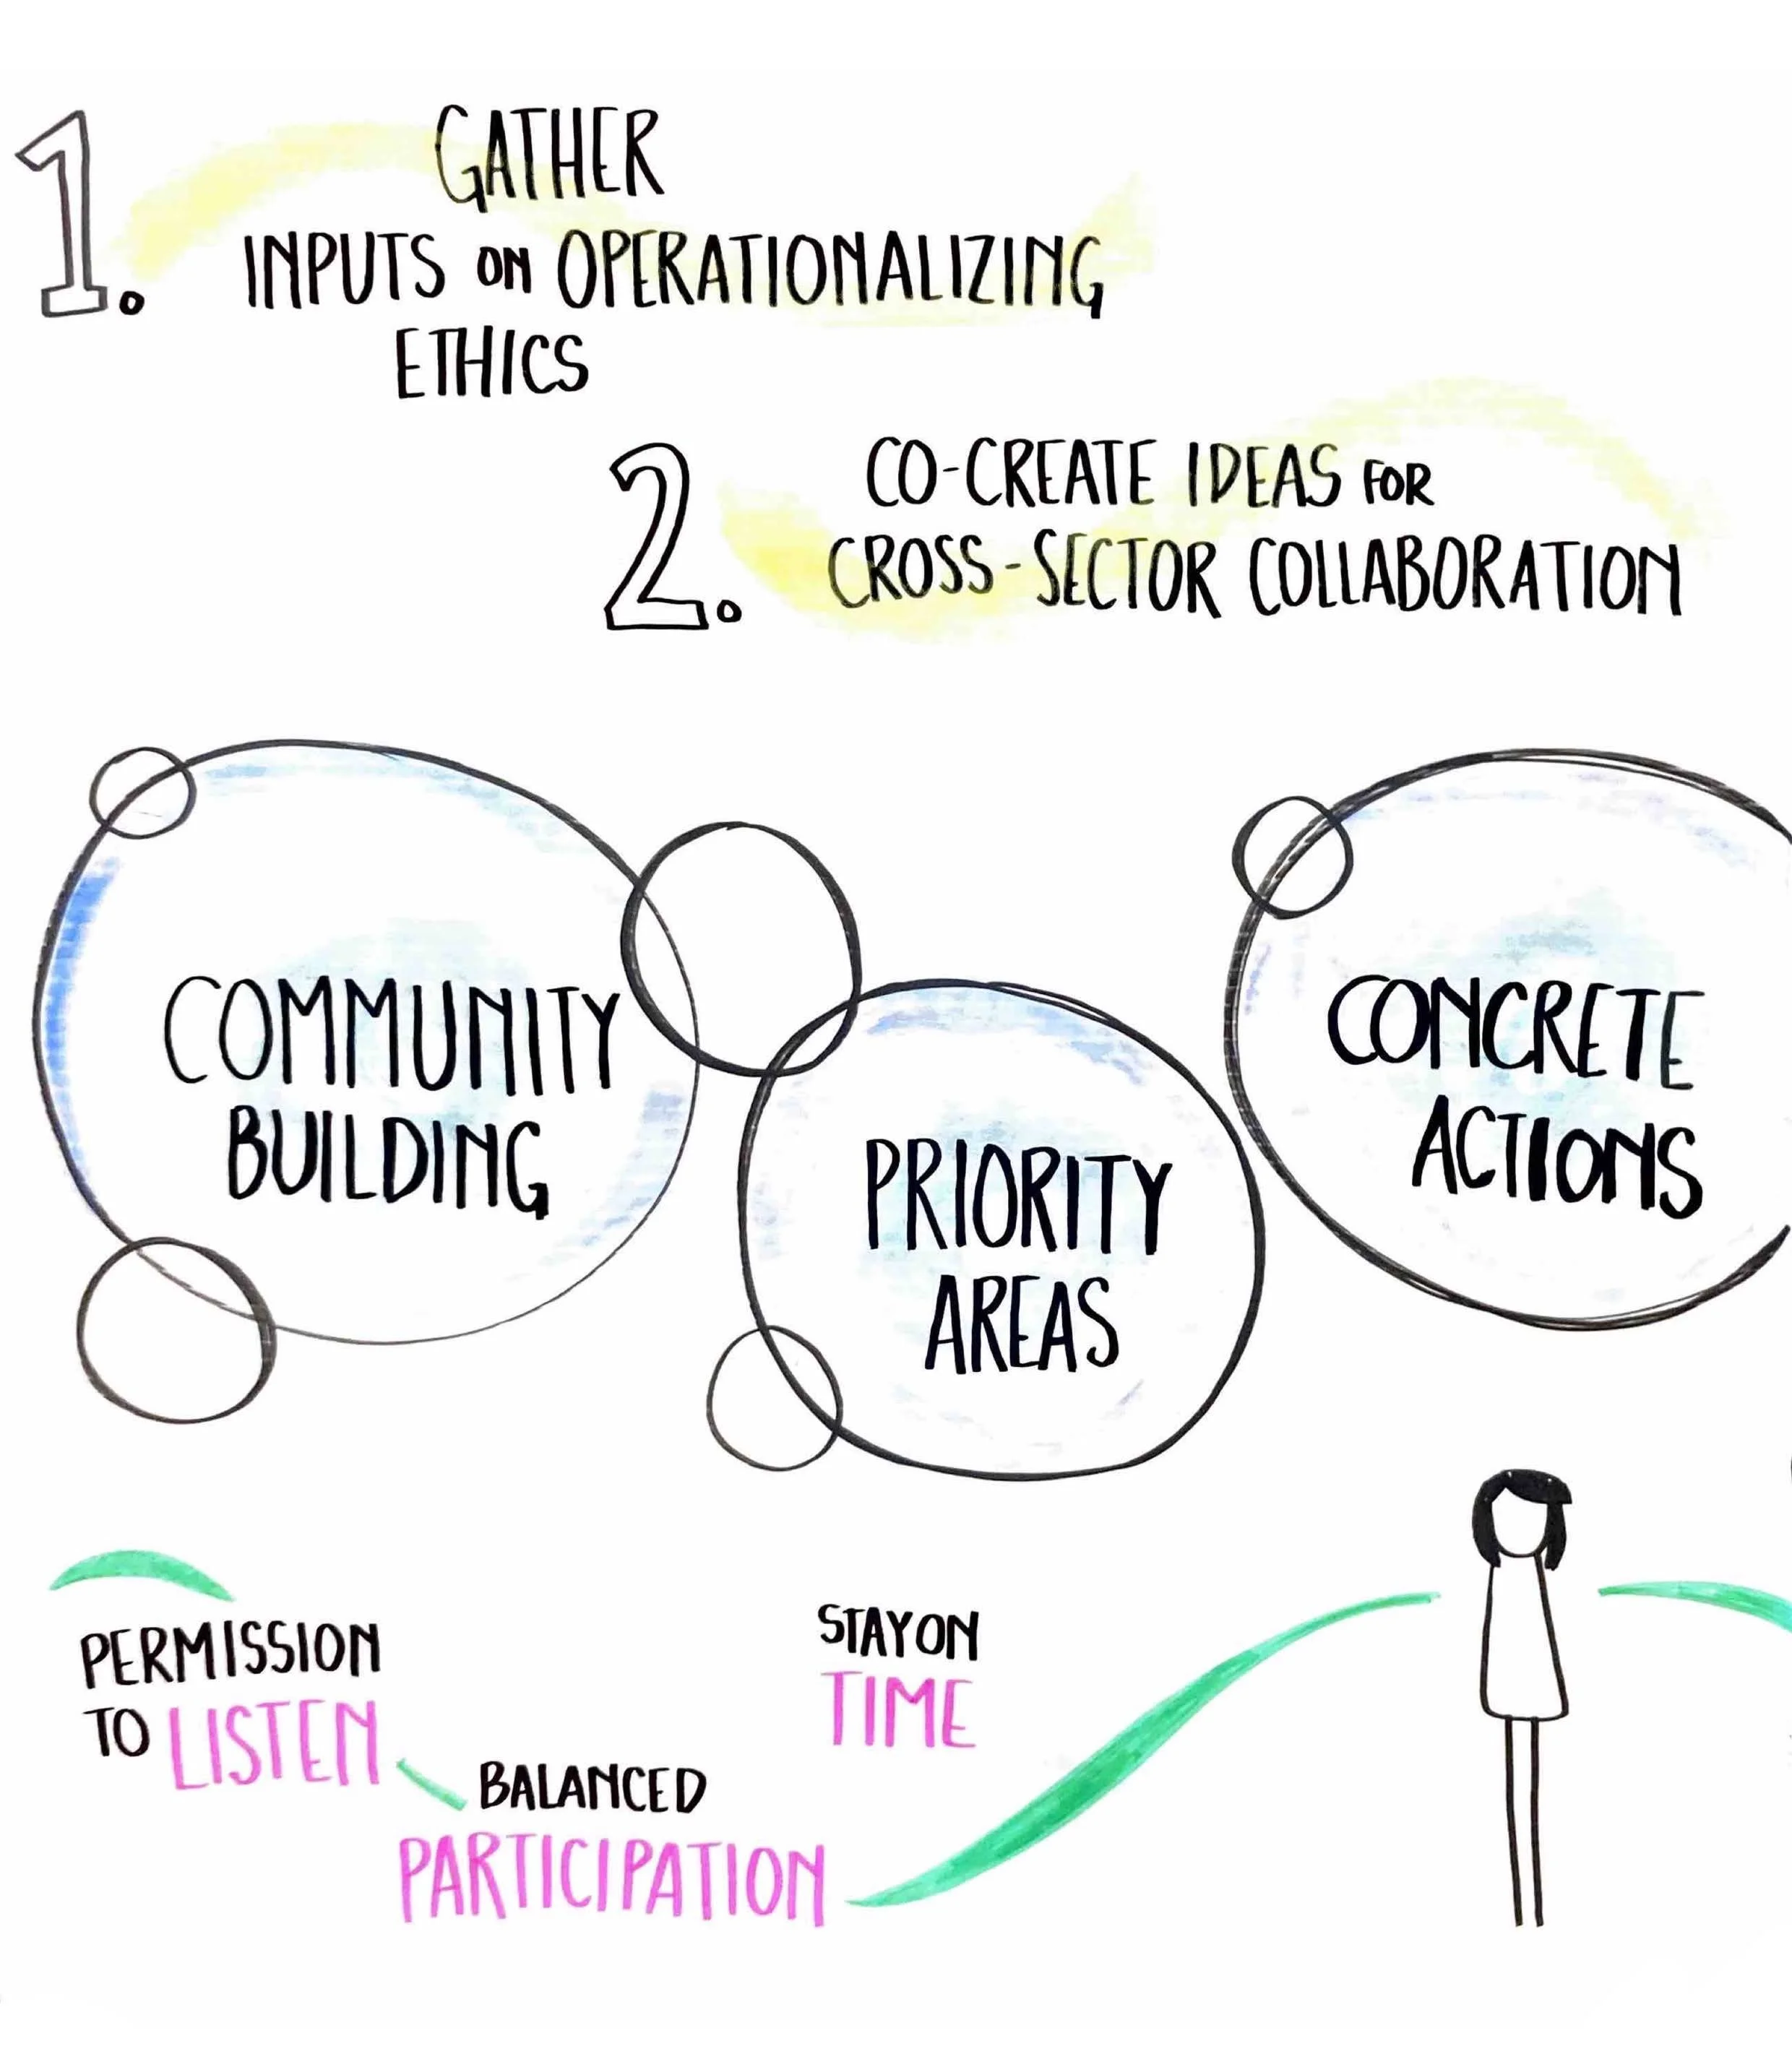 1. GATHER
INPUTS ON OPERATIONALIZING
ETHICS
2. CO-CREATE IDEAS FOR
CROSS-SECTOR COLLABORATION
COMMUNITY
BUILDING
PRIORITY
AREAS
CONCRETE
ACTIONS
PERMISSION
TO LISTEN
BALANCED
PARTICIPATION
STAY ON
TIME